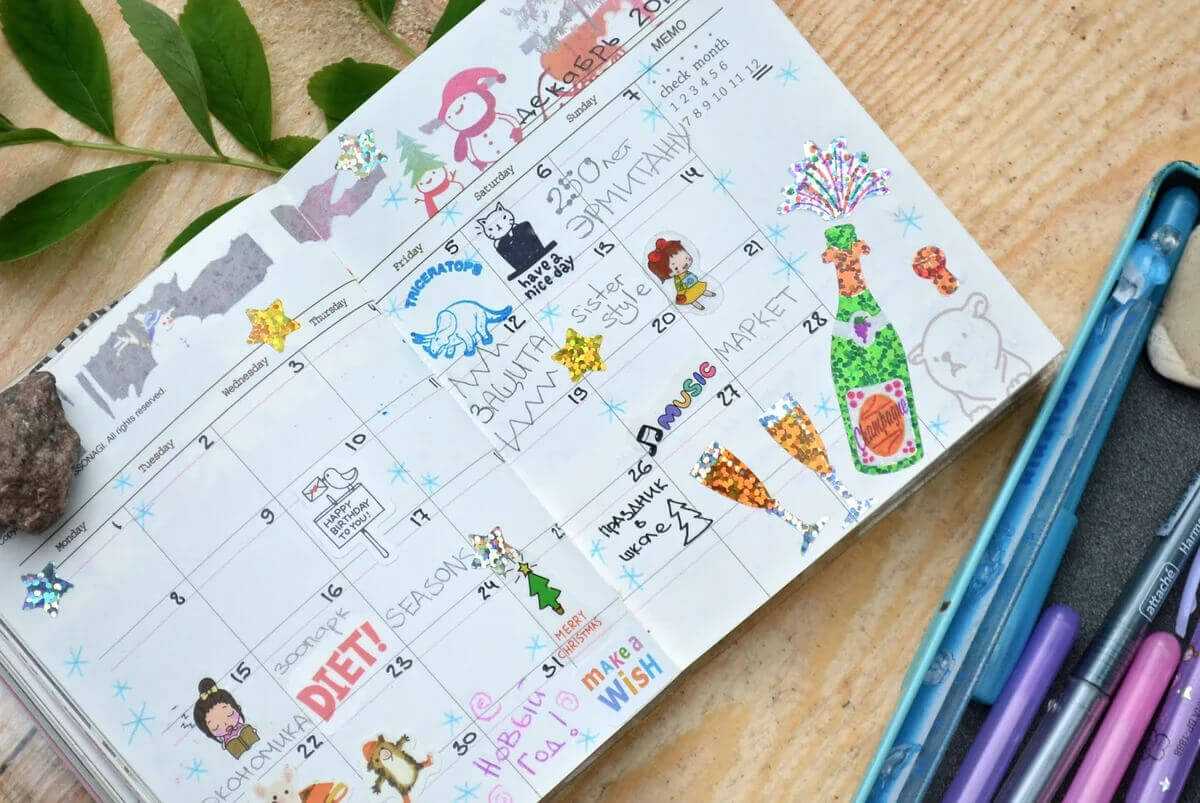 Декабрь
MEMO
check month
1 2 3 4 5 6
7 8 9 10 11 12
All rights reserved.
Monday
Tuesday
Wednesday
Thursday
Friday
Saturday
Sunday
1
2
3
5
TRICERATOPS
6
have a
nice day
7
250 лет
ЭРМИТАЖУ
8
9
10
HAPPY
BIRTHDAY
TO YOU!
12
ЗАЩИТА
13
sister
style
14
15
16
зоопарк
DIET!
17
SEASONS
19
20
MUSIC
21
МАРКЕТ
22
23
24
MERRY
CHRISTMAS
26
ПРАЗДНИК
в
школе
27
28
Champagne
30
31
Новый
Год!
make a
WiSH
attaché